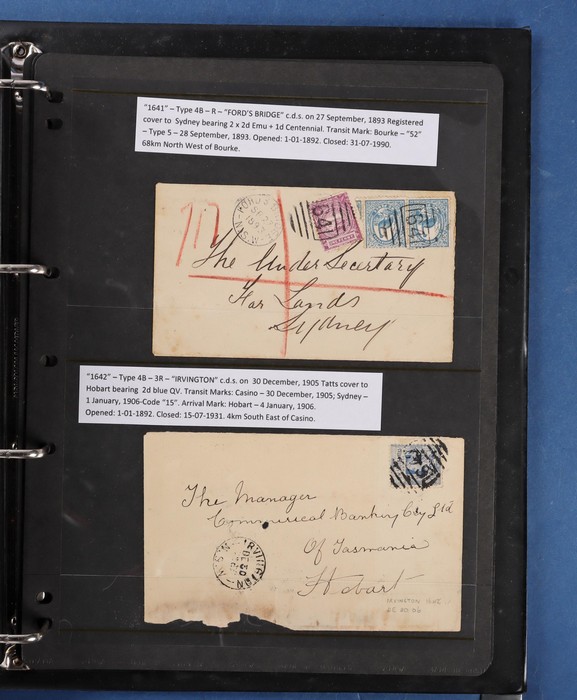 "1641" – Type 4B – R – "FORD'S BRIDGE" c.d.s. on 27 September, 1893 Registered
cover to Sydney bearing 2 x 2d Emu + 1d Centennial. Transit Mark: Bourke – "52"
– Type 5 – 28 September, 1893. Opened: 1-01-1892. Closed: 31-07-1990.
68km North West of Bourke.
The Under Secertary
For Lands
Sydney
"1642" – Type 4B – 3R – "IRVINGTON" c.d.s. on 30 December, 1905 Tatts cover to
Hobart bearing 2d blue QV. Transit Marks: Casino – 30 December, 1905; Sydney –
1 January, 1906-Code "15". Arrival Mark: Hobart – 4 January, 1906.
Opened: 1-01-1892. Closed: 15-07-1931. 4km South East of Casino.
The Manager
Commerical Banking Coy Ltd
Of Tasmania
Hobart
IRVINGTON
N.S.W
DE 30
IRVINGTON